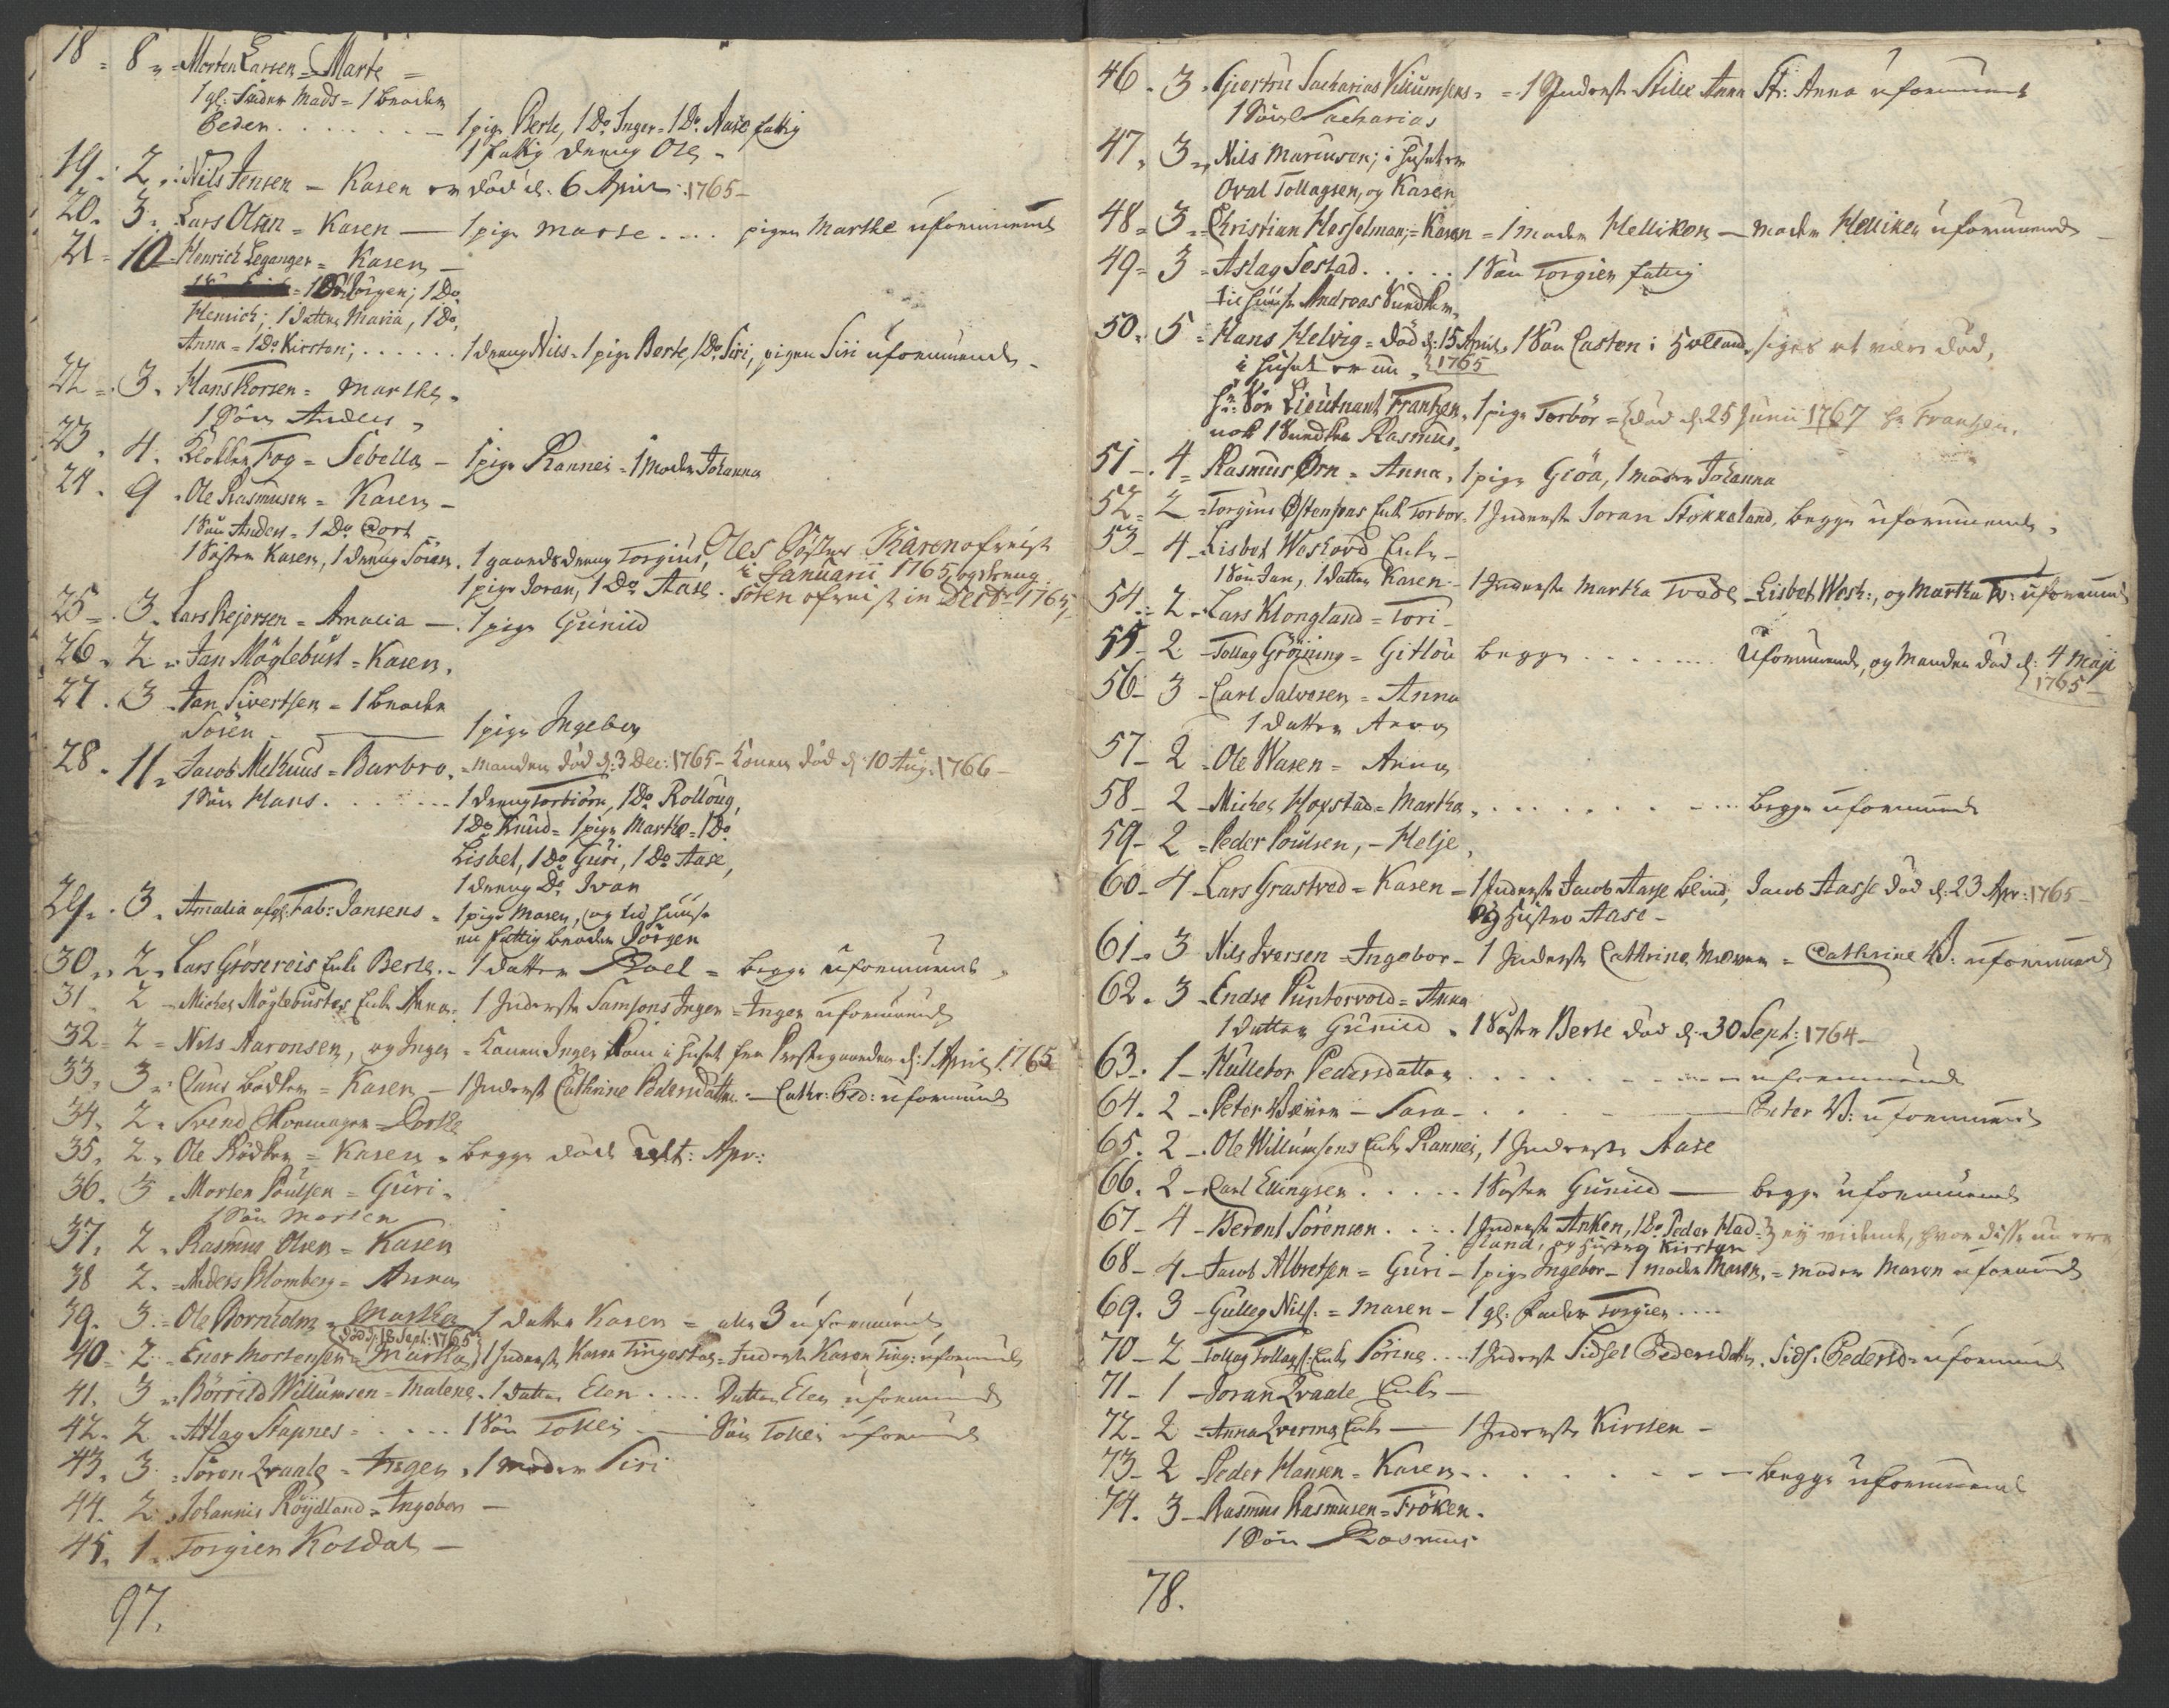 18 = 8 = Morten Larsen = Marte =
1 gl: Fader Mads = 1 broder
Peder . . . . . . . — 1 pige Berte, 1 Do Inger = 1 Do Aase fattig
1 fattig dreng Ole
19. 2. Nils Jensen — Karen er død d: 6 April: 1765 —
20. 3. Lars Olsen = Karen — 1 pige Marte . . . . pigen Marthe uformuende
21 = 10 = Henrich Leganger = Karen —
= 1 Do Jörgen; 1 Do
Henrich; 1 datter Maria, 1 Do,
Anna = 1 Do Kirsten; . . . . . . 1 dreng Nils = 1 pige Berte, 1 Do Siri, pigen Siri uformuende
22 = 3. Hans Korsen = Marthe
1 Sön Anders
23. 4. Klokker Fog = Sebella — 1 pige Rannei = 1 moder Johanna
24. 9. Ole Rasmusen = Karen —
1 Sön Anders = 1 Do Cort
1 Söster Karen, 1 dreng Sören, 1 gaardsdreng Torgius, Oles Söster Karen afreist
1 pige Joran, 1 Do Aase. i Januarii 1765, og dreng
Sören afreist in Decbr 1765,
25 = 3. Lars Rejersen = Amalia — 1 pige Gunild
26. 2. Jan Möglebust = Karen,
27. 3 Jan Sivertsen = 1 broder
Sören — 1 pige Ingebor
28. 11. Jacob Melhuus = Barbro. = manden död d: 3 Dec: 1765 — Konen död d: 10 Aug: 1766 —
1 Sön Hans . . . . . . . 1 dreng Torbiörn, 1 Do Rolloug,
1 Do Knud = 1 pige Marthe = 1 Do
Lisbet, 1 Do Guri, 1 Do Aase,
1 dreng Do Ivar
29. 3. Amalia afgl: Fab: Jansens = 1 pige Maren, og til huuse
en fattig broder Jörgen
30. 2. Lars Grösereis Enke Berte. — 1 datter Boel = begge uformuende
31 2 — Michel Möglebustes Enke Anna. 1 Inderste Samsons Inger = Inger uformuende
32 = 2 = Nils Aaronsen, og Inger = Konen Inger kom i huset fra Prestegaarden d: 1 April 1765
33. 3. Claus Bödker = Karen — 1 Inderst Cathrine Pedersdatter — Cathr: Ped: uformuende
34. 2. Svend Skomager = Dorthe
35. 2. Ole Rödker = Karen = begge döde ult: Apr:
36. 3. Morten Poulsen = Guri
1 Sön Morten
37. 2. Rasmus Olsen = Karen
38 2. = Anders Blomberg = Anna
39. 3. = Ole Bornholm = Martha 1 datter Karen = alle 3 uformuende
död d: 18 Sept: 1765
40 = 2. = Enar Mortensen = Martha 1 Inderste Karen Tingostad = Inderste Karen Ting: uformuende
41. 3. Börrild Willumsen = Malene. 1 datter Elen . . . . Datter Elen uformuende
42. 2. Atlag Stapnes = . . . . 1 Sön Tollei — Sön Tollei uformuende
43. 3. Sören Qvaale = Inger, 1 moder Siri
44. 2. Johannis Röydland = Ingebor —
45. 1. Torgier Koldal —
97.
46. 3. Giertru Sacharias Villumsens = 1 Inderste Stille Anna St: Anna uformuende
1 Sön Sacharias
47. 3. Nils Mareuson; i huset er
Oval Tollagsen, og Karen
48 = 3 = Christian Hesselman; = Karen = 1 moder Helliken — moder Helliken uformuende
49 = 3 = Aslag Sestad . . . . . 1 Sön Torgier fattig
til huuse Andreas Sundter
50. 5 = Hans Helvig = död d: 15 April, 1 Sön Casten i Holland siges at være död,
i huset er nu 1765
Hr: Sön Lieutnant Frantzen, 1 pige Torbör = död d: 25 Junii 1767 Hr Frantzen.
nok 1 Rasmus,
51 — 4 = Rasmus Örn = Anna, 1 pige Giöa, 1 moder Johanna
52 = 2 = Torgius Östenses Enke Torbor = 1 Inderste Joran Stokkaland, begge uformuende
53 — 4 — Lisbet Weshovd Enke —
1 Sön Jan, 1 datter Karen — 1 Inderste Martha Tvode — Lisbet Wesh:, og Martha Tv: uformuende
54. 2 = Lars Klongland = Tori —
55 — 2. — Tollag Gröjning = Gitlou begge . . . . . . . Uformuende, og Manden död d: 4 Maji
1765 —
56 — 3 — Carl Salvesen = Anna
1 datter Anna
57 — 2 — Ole Wasen = Anna
58 — 2 — Michel Hopstad = Martha, . . . . . . . begge uformuende
59 — 2 = Peder Poulsen, — Helje,
60 — 4 — Lars Grastved = Karen = 1 Inderste Jacob Aasse blind, Jacob Aasse död d: 23 Apr: 1765 —
og hustro Aase —
61 — 3 Nils Iversen = Ingebor — 1 Inderste Cathrine = Cathrine W: uformuende
62. 3 — Endre Puntervold = Anna
1 datter Gunild = 1 Söster Berte död d: 30 Sept: 1764 —
63 — 1 — Hullebor Pedersdatter . . . . . . . uformuende
64. 2 — Peter — Sara — . . . Peter W: uformuende
65. 2 — Ole Willumsens Enke Rannei, 1 Inderste Aase
66. 2 — Carl Ellingsen . . . . . 1 Söster Gunild — begge uformuende
67 — 4 — Berent Sörensen . . . . 1 Inderste Anken, 1 Do Peder Had= ej vidende, hvor disse nu ere
land, og hustro Kirsten
68 — 4 — Jacob Albretsen = Guri — 1 pige Ingebor — 1 moder Maren, = moder Maren uformuende
69. 3 — Gulleg Nils: = Maren — 1 gl: Fader Torgier . . . .
70 — 2 — Tollag Tollags: Enke Sörine . . . . 1 Inderst Sidsel Pedersdatter. Sids: Pedersd: uformuende
71 — 1 — Joran Qvaale Enke —
72 — 2 = Anna Qverma Enke — 1 Inderste Kirsten —
73 — 2 — Peder Hansen = Karen — . . . . . . . begge uformuende
74. 3 — Rasmus Rasmusen = Fröken.
1 Sön Rasmus
78.